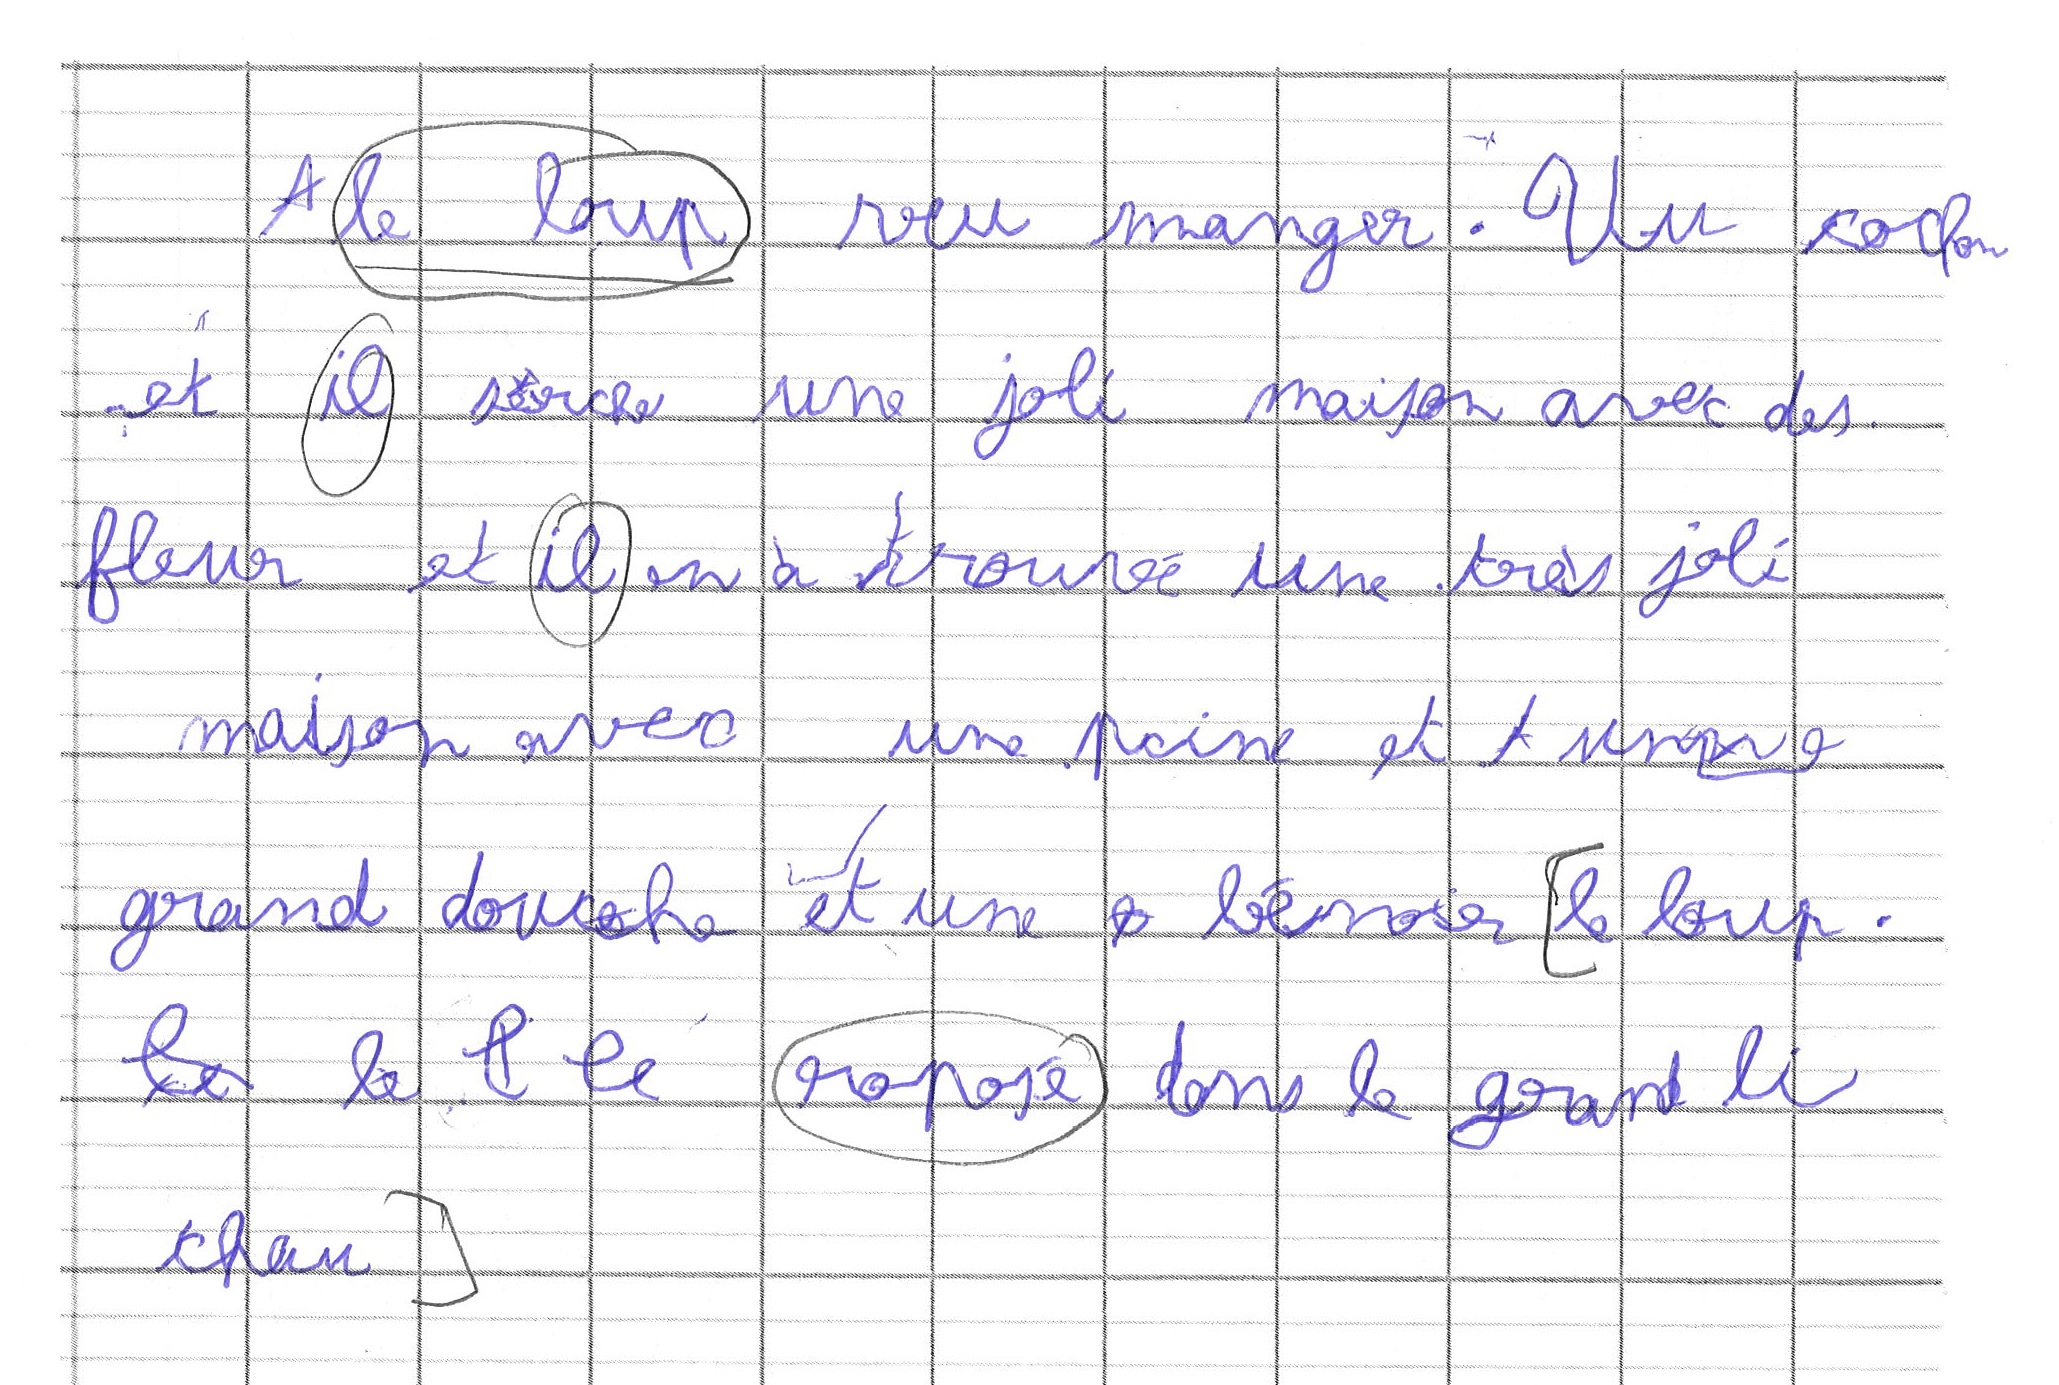 A le loup veu manger. Un cochon
et il serche une joli maison avec des
fleur et il en à trouvé une très joli
maison avec une pcine et t une
grand douche et une le loup.
le repose dans le grand li
chau